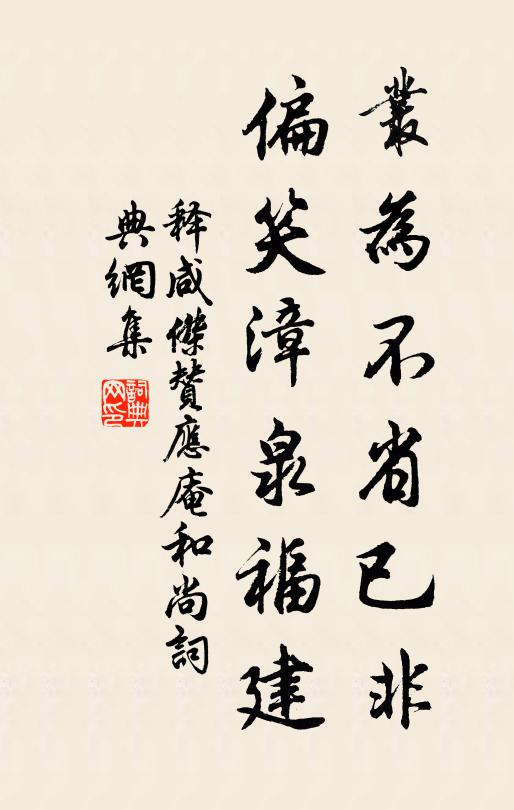 叢為不省已非
偏笑漳泉福建
释咸傑贊應庵和尚詞
典網集
詞典
网印